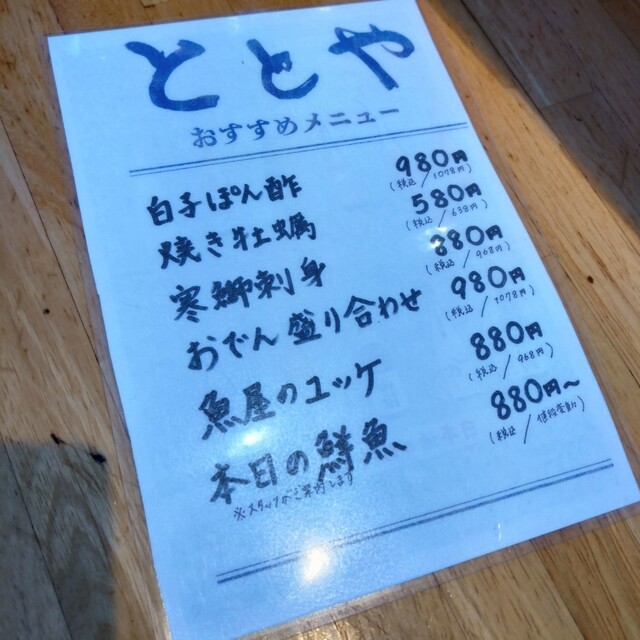 ととや
おすすめメニュー
白子ぽん酢 980円
(税込/1078円)
焼き牡蠣 580円
(税込/638円)
寒鰤刺身 880円
(税込/968円)
おでん盛り合わせ 980円
(税込/1078円)
魚屋のユッケ 880円
(税込/968円)
本日の鮮魚 880円~
(税込/価格変動)
※スタッフへ